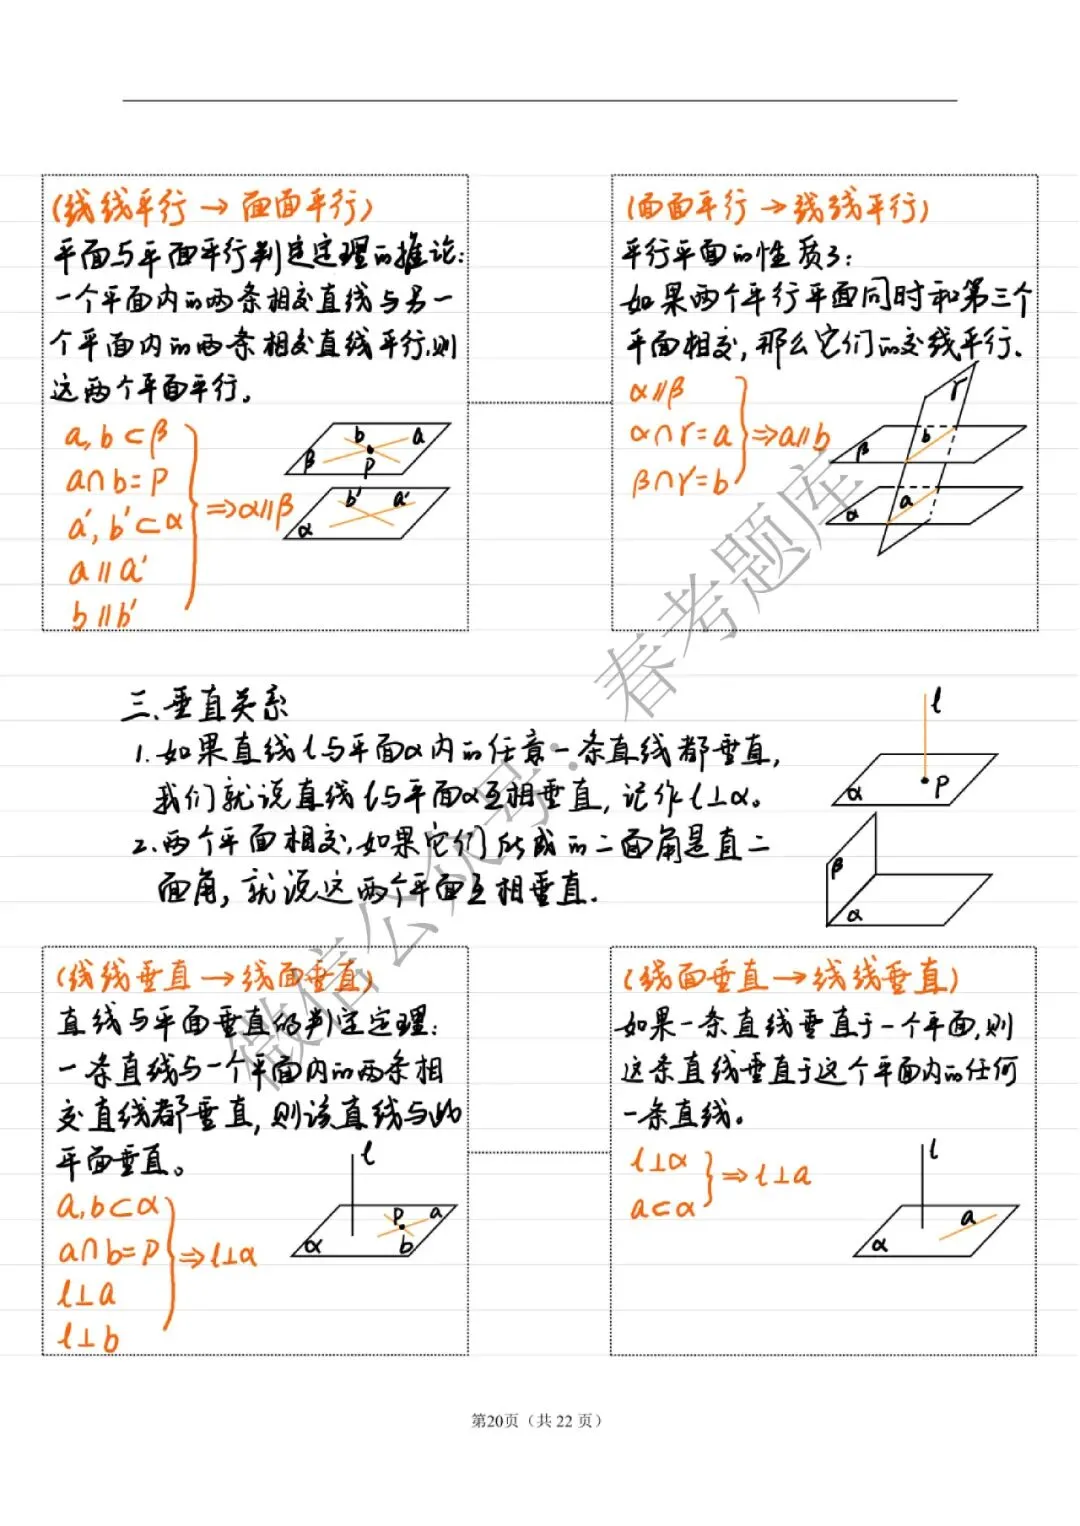 (线线平行→面面平行)
平面与平面平行判定定理的推论:
一个平面内的两条相交直线与另一
个平面内的两条相交直线平行,则
这两个平面平行。
a,b⊂β
a∩b=P
a′,b′⊂α
a∥a′
b∥b′
⇒α∥β
b a
β P
b′ a′
α
(面面平行→线线平行)
平行平面的性质3:
如果两个平行平面同时和第三个
平面相交,那么它们的交线平行.
α∥β
α∩γ=a
β∩γ=b
⇒a∥b
γ
b
β
a
α
三.垂直关系
1.如果直线l与平面α内的任意一条直线都垂直,
我们就说直线l与平面α互相垂直,记作l⊥α。
2.两个平面相交,如果它们所成的二面角是直二
面角,就说这两个平面互相垂直.
l
α P
β
α
(线线垂直→线面垂直)
直线与平面垂直的判定定理:
一条直线与一个平面内的两条相
交直线都垂直,则该直线与此
平面垂直。
a,b⊂α
a∩b=P
l⊥a
l⊥b
⇒l⊥α
l
P a
α b
(线面垂直→线线垂直)
如果一条直线垂直于一个平面,则
这条直线垂直于这个平面内的任何
一条直线。
l⊥α
a⊂α
⇒l⊥a
l
a
α
微信公众号:春考题库
第20页（共 22 页）